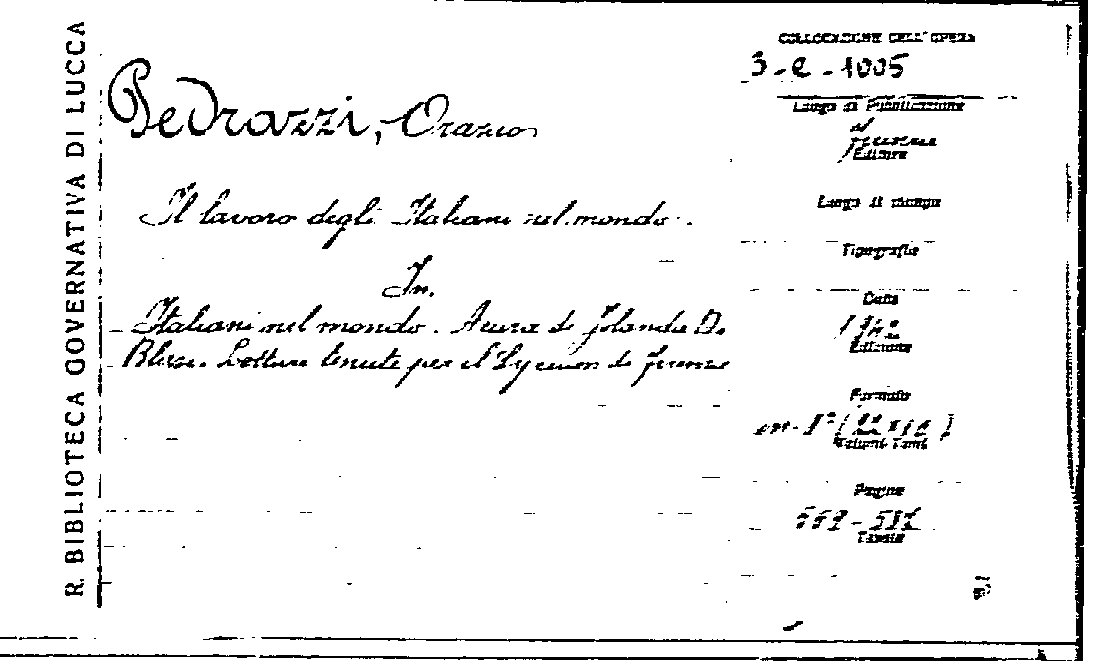 R. BIBLIOTECA GOVERNATIVA DI LUCCA
Pedrazzi, Orazio
Il lavoro degli Italiani nel mondo.
In.
Italiani nel mondo. A cura di Jolanda De
Blasi. Letture tenute per il Lyceum di Firenze
COLLOCAZIONE DELL'OPERA
3-e-1005
Luogo di Pubblicazione
Firenze
Editore
Luogo di stampa
Tipografia
Data
Edizione
Formato
in-8°
Volumi-Tomi
Pagine
Tavole